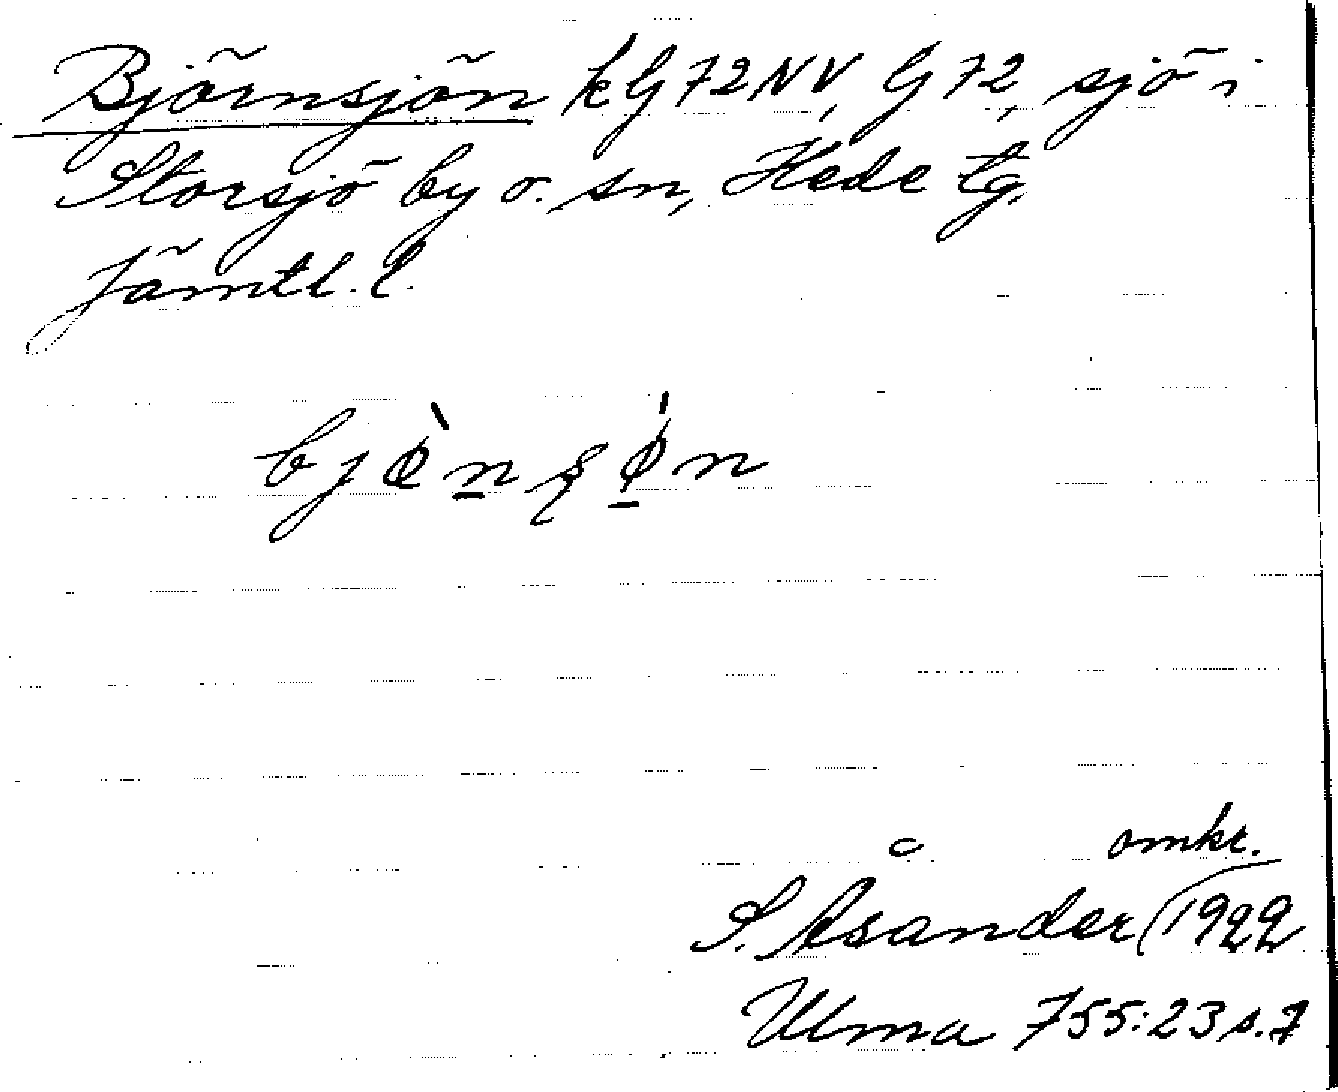 Björnsjön kG72NV, G72, sjö i
Storsjö by o. sn, Hede tg,
Jämtl. l.
omkr.
S. Åsander (1922
Ulma 755:23 s.7